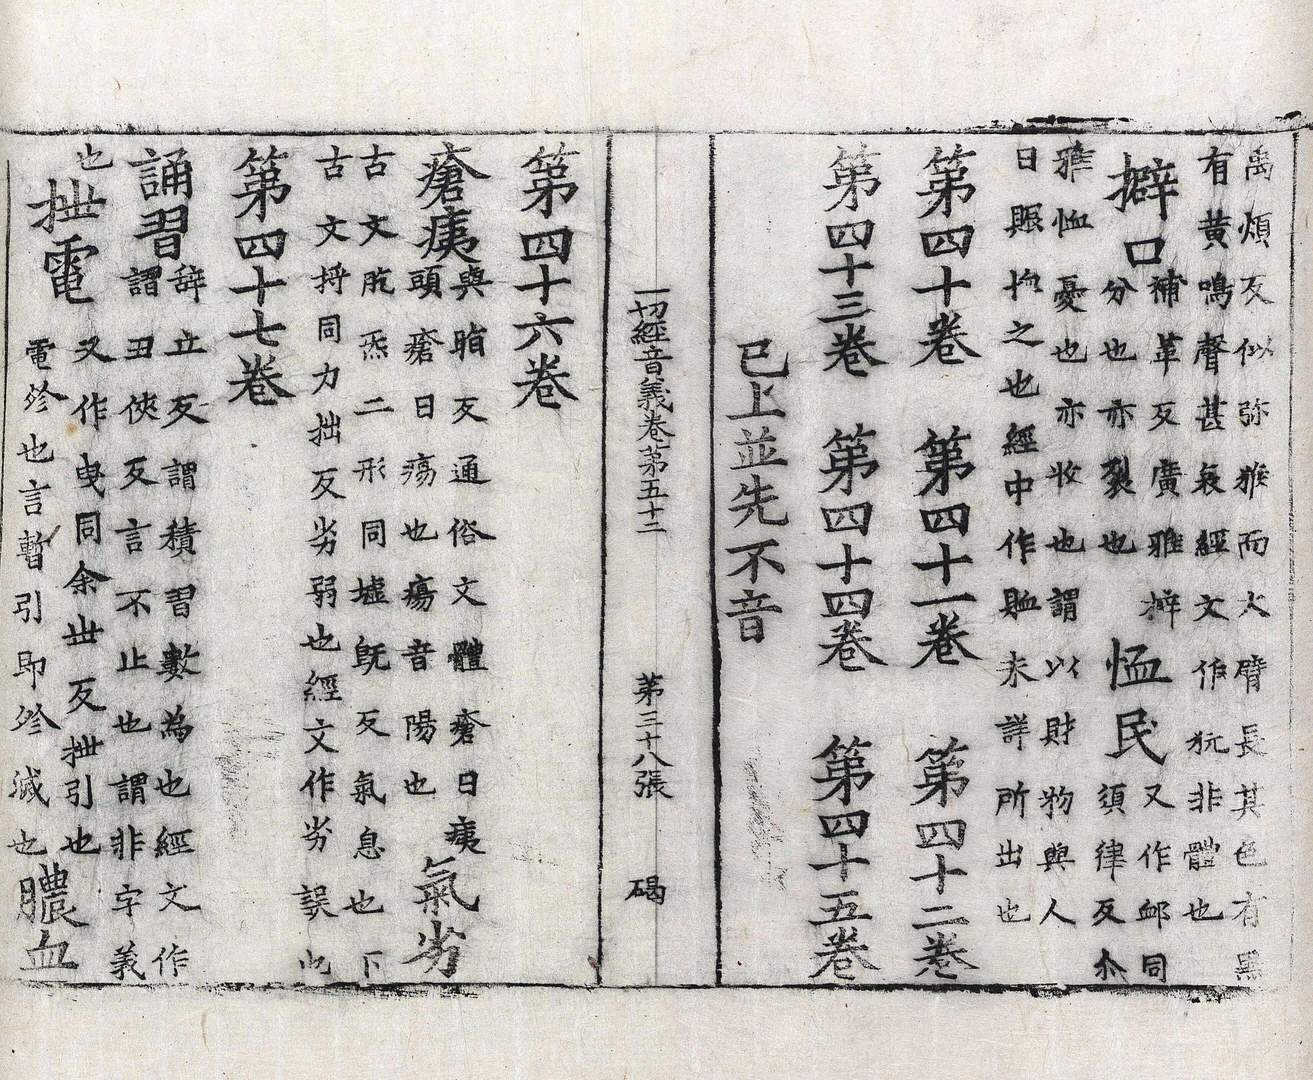 禹煩反似弥猴而大臂長其色有黑
有黄鳴聲甚哀經文作犺非體也
擗口補革反廣雅擗
分也亦裂也
恤民又作卹同
須律反尒
雅恤憂也亦收也謂以財物與人
日賑恤之也經中作賉未詳所出也
第四十卷 第四十一卷 第四十二卷
第四十三卷 第四十四卷 第四十五卷
已上並先不音
一切經音義卷第五十二 第三十八張 碣
第四十六卷
瘡痍與脂反通俗文體瘡曰痍
頭瘡曰瘍也瘍音陽也
氣劣
古文肐炁二形同墟旣反氣息也下
古文捋同力拙反劣弱也經文作劣誤也
第四十七卷
誦習辞立反謂積習數為也經文作
謂丑俠反言不止也謂非字義
也
拙電又作曳同余世反拙引也
電殄也言暫引即殄滅也
膿血